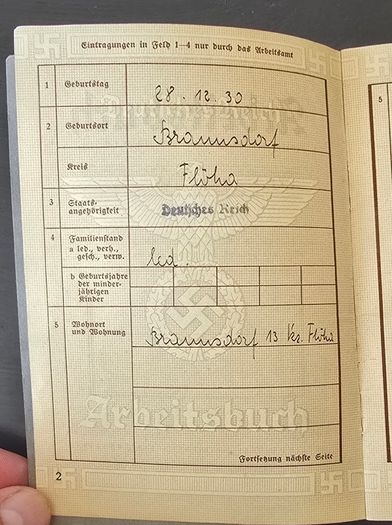 Eintragungen in Feld 1–4 nur durch das Arbeitsamt
1 Geburtstag 28. 12. 30
2 Geburtsort Braunsdorf
Kreis Flöha
3 Staats-
angehörigkeit Deutsches Reich
4 Familienstand
a led., verh.,
gesch., verw. led.
b Geburtsjahre
der minder-
jährigen
Kinder
5 Wohnort
und Wohnung Braunsdorf 13 Kr. Flöha
Deutsches Reich
Arbeitsbuch
Fortsetzung nächste Seite
2
5